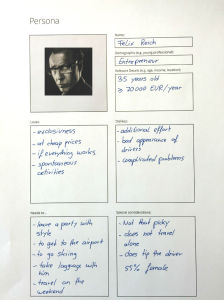 Persona
Name:
Felix Reich
Demographics (e.g. young professional)
Entrepreneur
Relevant Details (e.g. age, income, location)
35 years old
≥ 70000 EUR/year
Loves:
- exclusivness
- at cheap prices
- if everything works
- spontaneous
activities
Dislikes:
- additional effort
- bad appearance of
drivers
- complicated problems
Needs to...
- leave a party with
style
- to get to the airport
- to go skiing
- take language with
him
- travel on the
weekend
Special considerations:
- Not that picky
- does not travel
alone
- does tip the driver
55% female